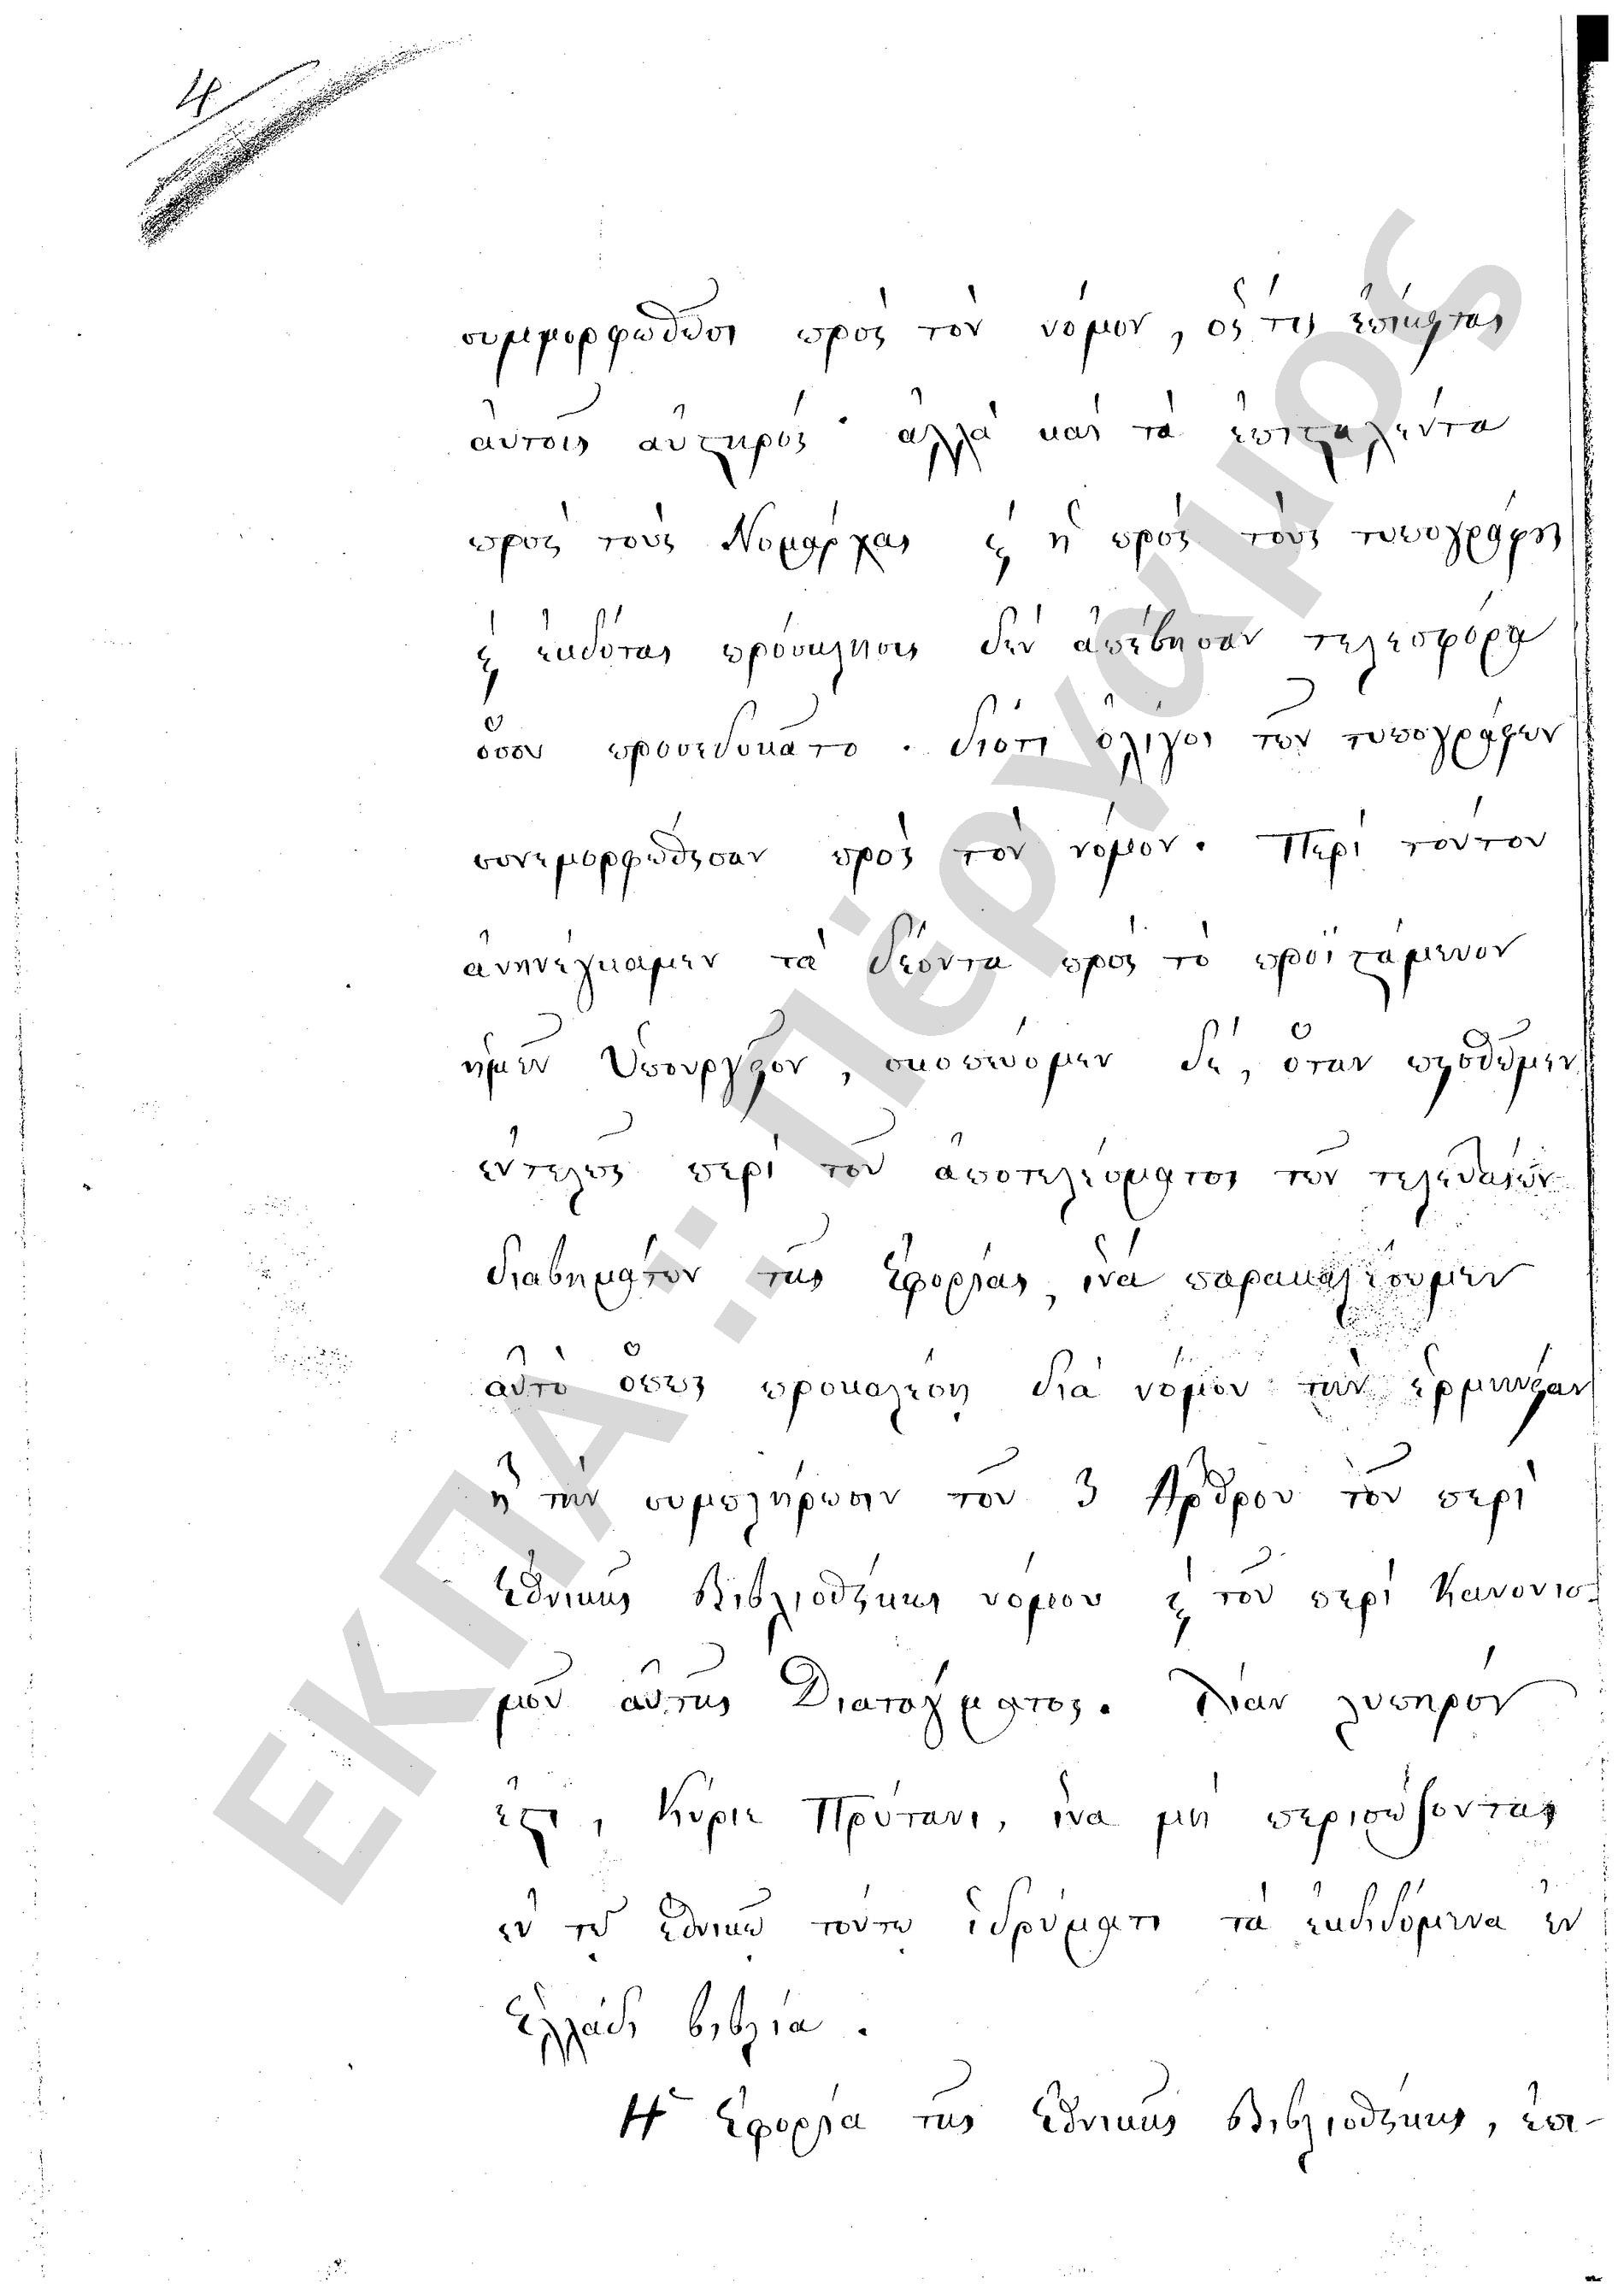 4
συμμορφωθῶσι πρὸς τὸν νόμον, ὅςτις ἐπίκειται
αὐτοῖς αὐστηρός· ἀλλὰ καὶ τὰ ἐπισταλέντα
πρὸς τοὺς Νομάρχας ϗ ἡ πρὸς τοὺς τυπογράφους
ϗ ἐκδότας πρόσκλησις δὲν ἀπέβησαν τελεσφόρα
ὅσον προσεδοκᾶτο. διότι ὀλίγοι τῶν τυπογράφων
συνεμορφώθησαν πρὸς τὸν νόμον. Περὶ τούτου
ἀνηνέγκαμεν τὰ δέοντα πρὸς τὸ προϊστάμενον
ἡμῶν Ὑπουργεῖον, σκοπεύομεν δέ, ὅταν πεισθῶμεν
ἐντελῶς περὶ τοῦ ἀποτελέσματος τῶν τελευταίων
διαβημάτων τῆς Ἐφορείας, ἵνα παρακαλέσωμεν
αὐτὸ ὅπως προκαλέσῃ διὰ νόμου τὴν ἑρμηνείαν
ἢ τὴν συμπλήρωσιν τοῦ 3 Ἄρθρου τοῦ περὶ
Ἐθνικῆς Βιβλιοθήκης νόμου ϗ τοῦ περὶ Κανονισ-
μοῦ αὐτῆς Διατάγματος. Λίαν λυπηρὸν
ἐστι, Κύριε Πρύτανι, ἵνα μὴ περισώζονται
ἐν τῷ ἐθνικῷ τούτῳ ἱδρύματι τὰ ἐκδιδόμενα ἐν
Ἑλλάδι βιβλία.
Ἡ Ἐφορεία τῆς Ἐθνικῆς Βιβλιοθήκης, ἐπι-
ΕΚΠΑ .: Πέργαμος